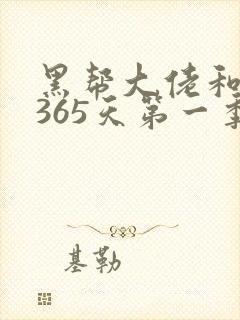 黑帮大佬和
365天第一季
基勒